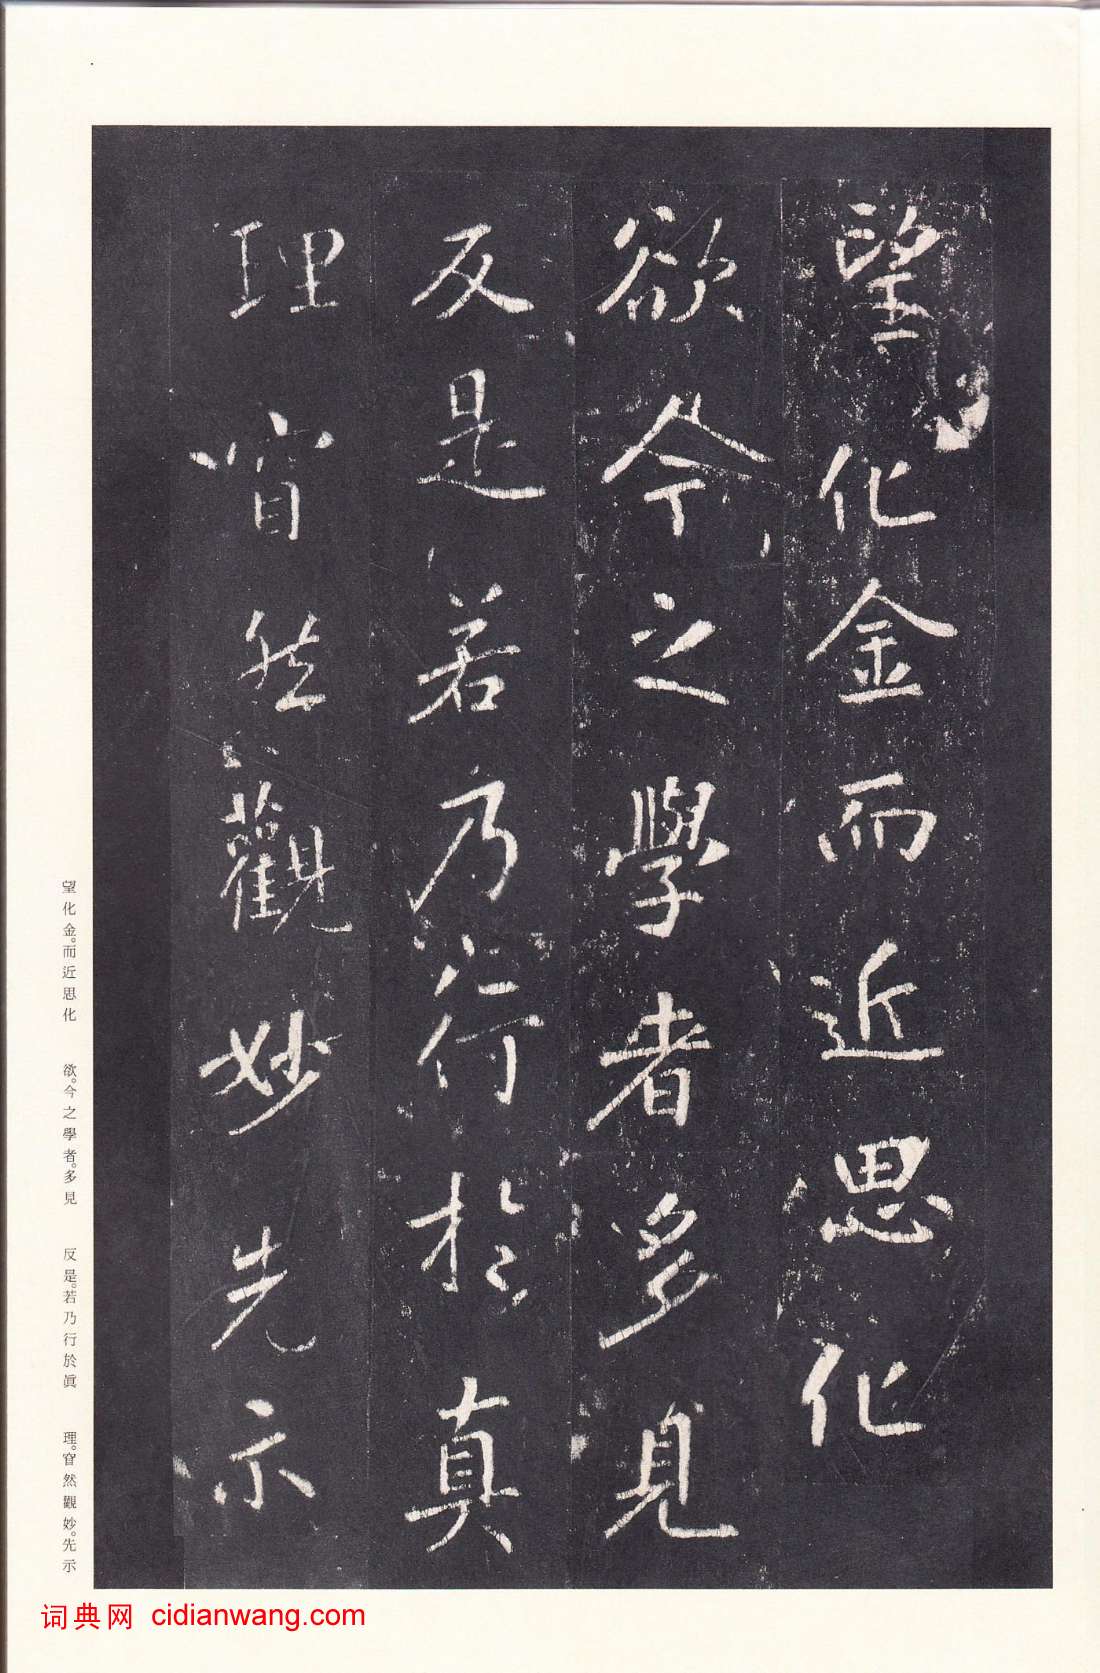 望化金而近思化
欲今之學者多見
反是若乃行於真
理窅然觀妙先示
望化金。而近思化　欲。今之學者。多見　反是。若乃行於眞　理。窅然觀妙。先示
词典网 cidianwang.com